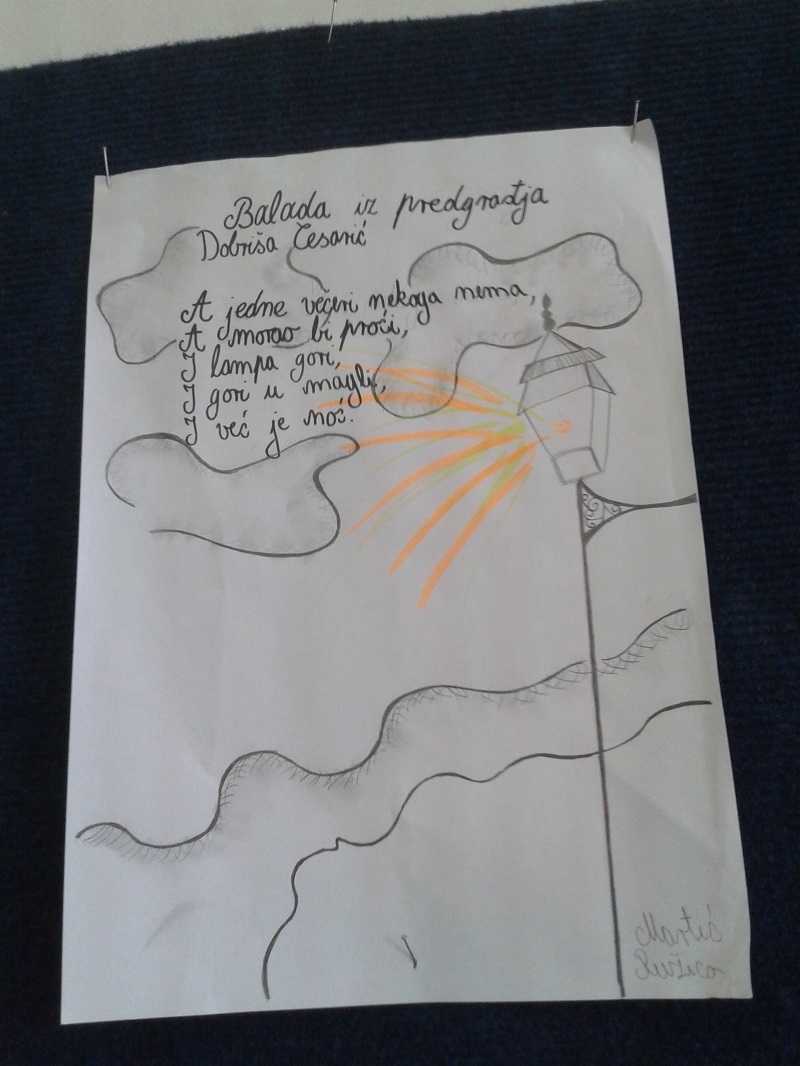 Balada iz predgrađa
Dobriša Cesarić
A jedne večeri nekoga nema,
A morao bi proći,
I lampa gori,
I gori u magli,
I već je noć.
Martić
Ružica